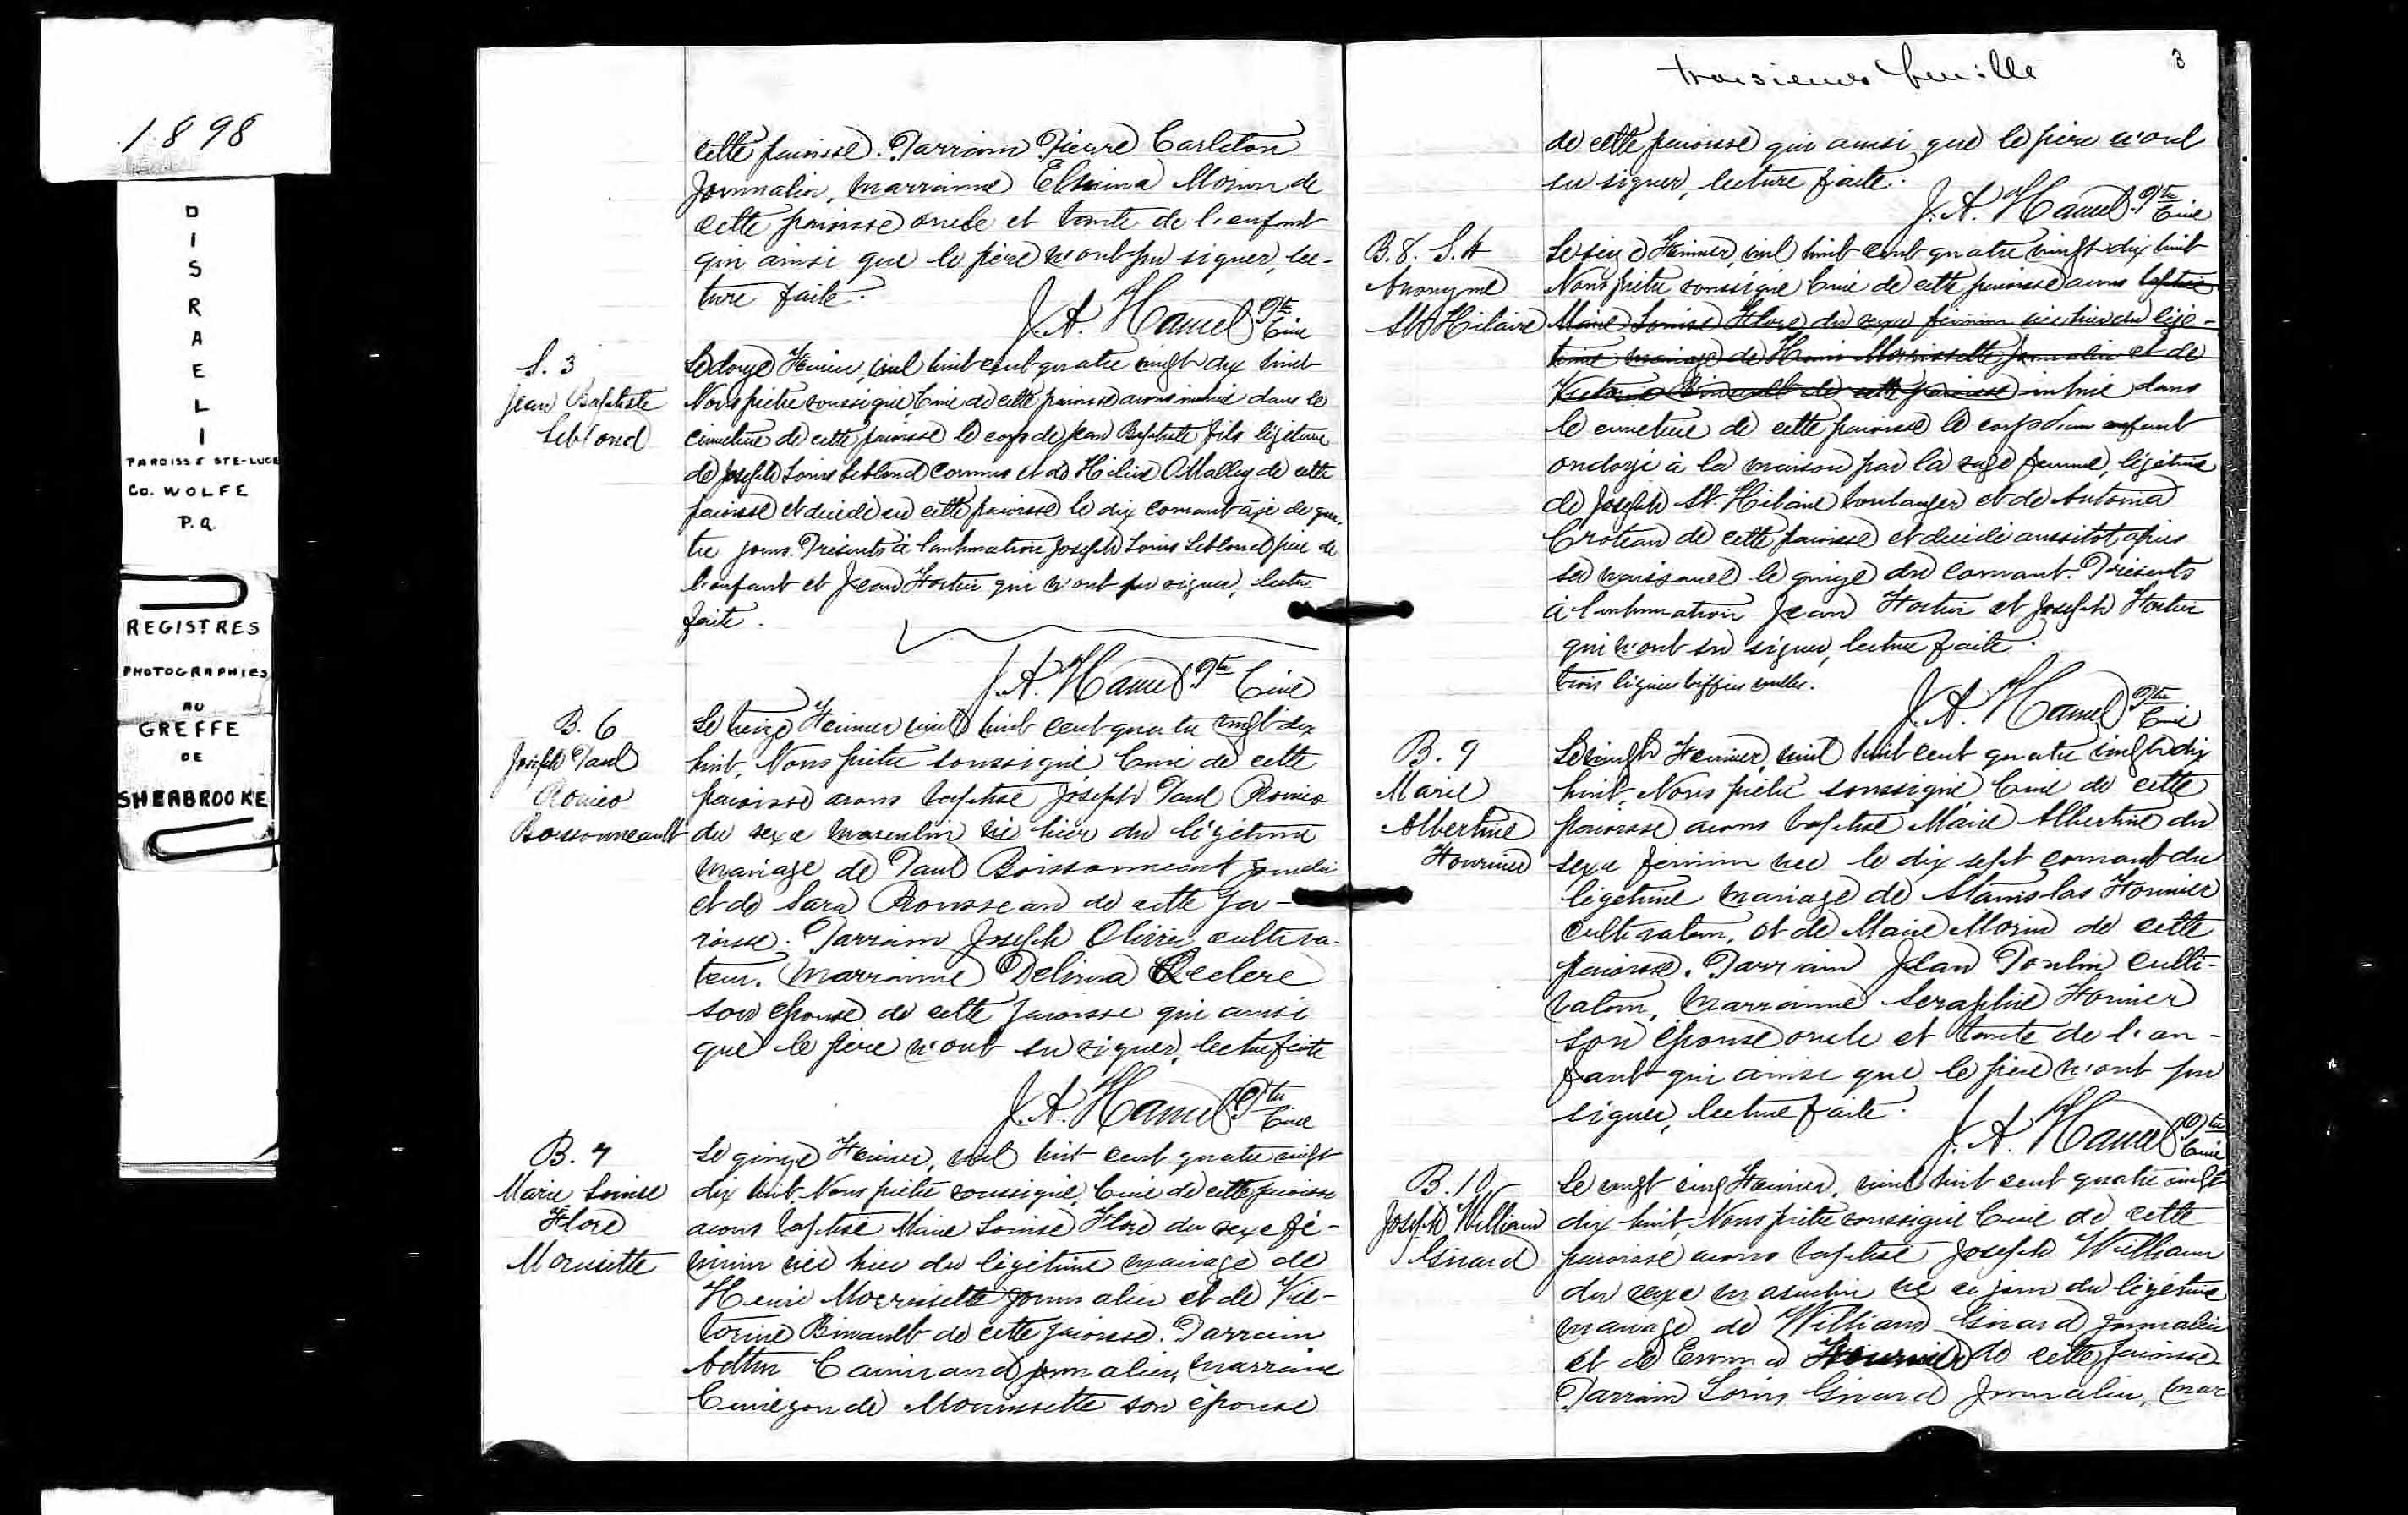 1898
DISRAELI
PAROISSE STE-LUCE
Co. WOLFE
P.Q.
REGISTRES
PHOTOGRAPHIES
AU
GREFFE
DE
SHERBROOKE
cette paroisse. Parrain Pierre Carleton
Journalier, marraine Elmina Morin de
cette paroisse oncle et tante de l'enfant
qui ainsi que le père n'ont pu signer, lec-
ture faite.
J.A. Hamel Ptre Curé
S. 3
Jean Baptiste
Leblond
Le douze Janvier, mil huit cent quatre vingt dix huit
Nous prêtre soussigné, Curé de cette paroisse avons inhumé dans le
cimetière de cette paroisse le corps de Jean Baptiste fils légitime
de Joseph Louis Leblond Commis et de O'Malley de cette
paroisse et décédé en cette paroisse le dix courant âgé de qua-
tre jours. Présents à l'inhumation Joseph Louis Leblond père de
l'enfant et Jean Fortier qui n'ont pu signer, lecture
faite.
J.A. Hamel Ptre Curé
B. 6
Joseph Paul
Romeo
Boissonneault
Le treize Janvier mil huit cent quatre vingt dix
huit, Nous prêtre soussigné Curé de cette
paroisse avons baptisé Joseph Paul Romeo
du sexe masculin né hier du légitime
mariage de Paul Boissonneault journalier
et de Sara Rousseau de cette pa-
roisse. Parrain Joseph Olivier cultiva-
teur. Marraine Delima Leclerc
son épouse de cette paroisse qui ainsi
que le père n'ont su signer, lecture faite
J.A. Hamel Ptre Curé
B. 7
Marie Louise
Flore
Morissette
Le quinze Janvier, mil huit cent quatre vingt
dix huit. Nous prêtre soussigné, Curé de cette paroisse
avons baptisé Marie Louise Flore du sexe fé-
minin née hier du légitime mariage de
Henri Morrissette journalier et de Vic-
torine de cette paroisse. Parrain
journalier, marraine
Cunégonde Morrissette son épouse
troisième feuille
3
de cette paroisse qui ainsi que le père n'ont
su signer, lecture faite.
J.A. Hamel Ptre Curé
B. 8. S. 4
Anonyme
St Hilaire
Le seize Janvier, mil huit cent quatre vingt dix huit
Nous prêtre soussigné Curé de cette paroisse avons baptisé
Marie Louise Flore du sexe féminin née hier du légi-
time mariage de Henri Morrissette journalier et de
de cette paroisse inhumé dans
le cimetière de cette paroisse le corps d'un enfant
ondoyé à la maison par la sage femme, légitime
de Joseph St. Hilaire boulanger et de Antonia
Croteau de cette paroisse et décédé aussitot après
sa naissance le quinze du courant. Présents
à l'inhumation Jean Fortier et Joseph Fortier
qui n'ont su signer, lecture faite.
trois lignes biffées nulles.
J.A. Hamel Ptre Curé
B. 9
Marie
Albertine
Fournier
Le vingt Janvier, mil huit cent quatre vingt dix
huit, Nous prêtre soussigné Curé de cette
paroisse avons baptisé Marie Albertine du
sexe féminin née le dix sept courant du
légitime mariage de Stanislas Fournier
cultivateur, et de Marie Morin de cette
paroisse. Parrain Jean Poulin culti-
vateur, marraine Seraphie Fournier
son épouse oncle et tante de l'en-
fant qui ainsi que le père n'ont pu
signer, lecture faite.
J.A. Hamel Ptre Curé
B. 10
Joseph William
Girard
Le vingt cinq Janvier, mil huit cent quatre vingt
dix-huit, Nous prêtre soussigné Curé de cette
paroisse avons baptisé Joseph William
du sexe masculin né ce jour du légitime
mariage de William Girard journalier
et de Emma Fournier de cette paroisse
Parrain Louis Girard Journalier, mar